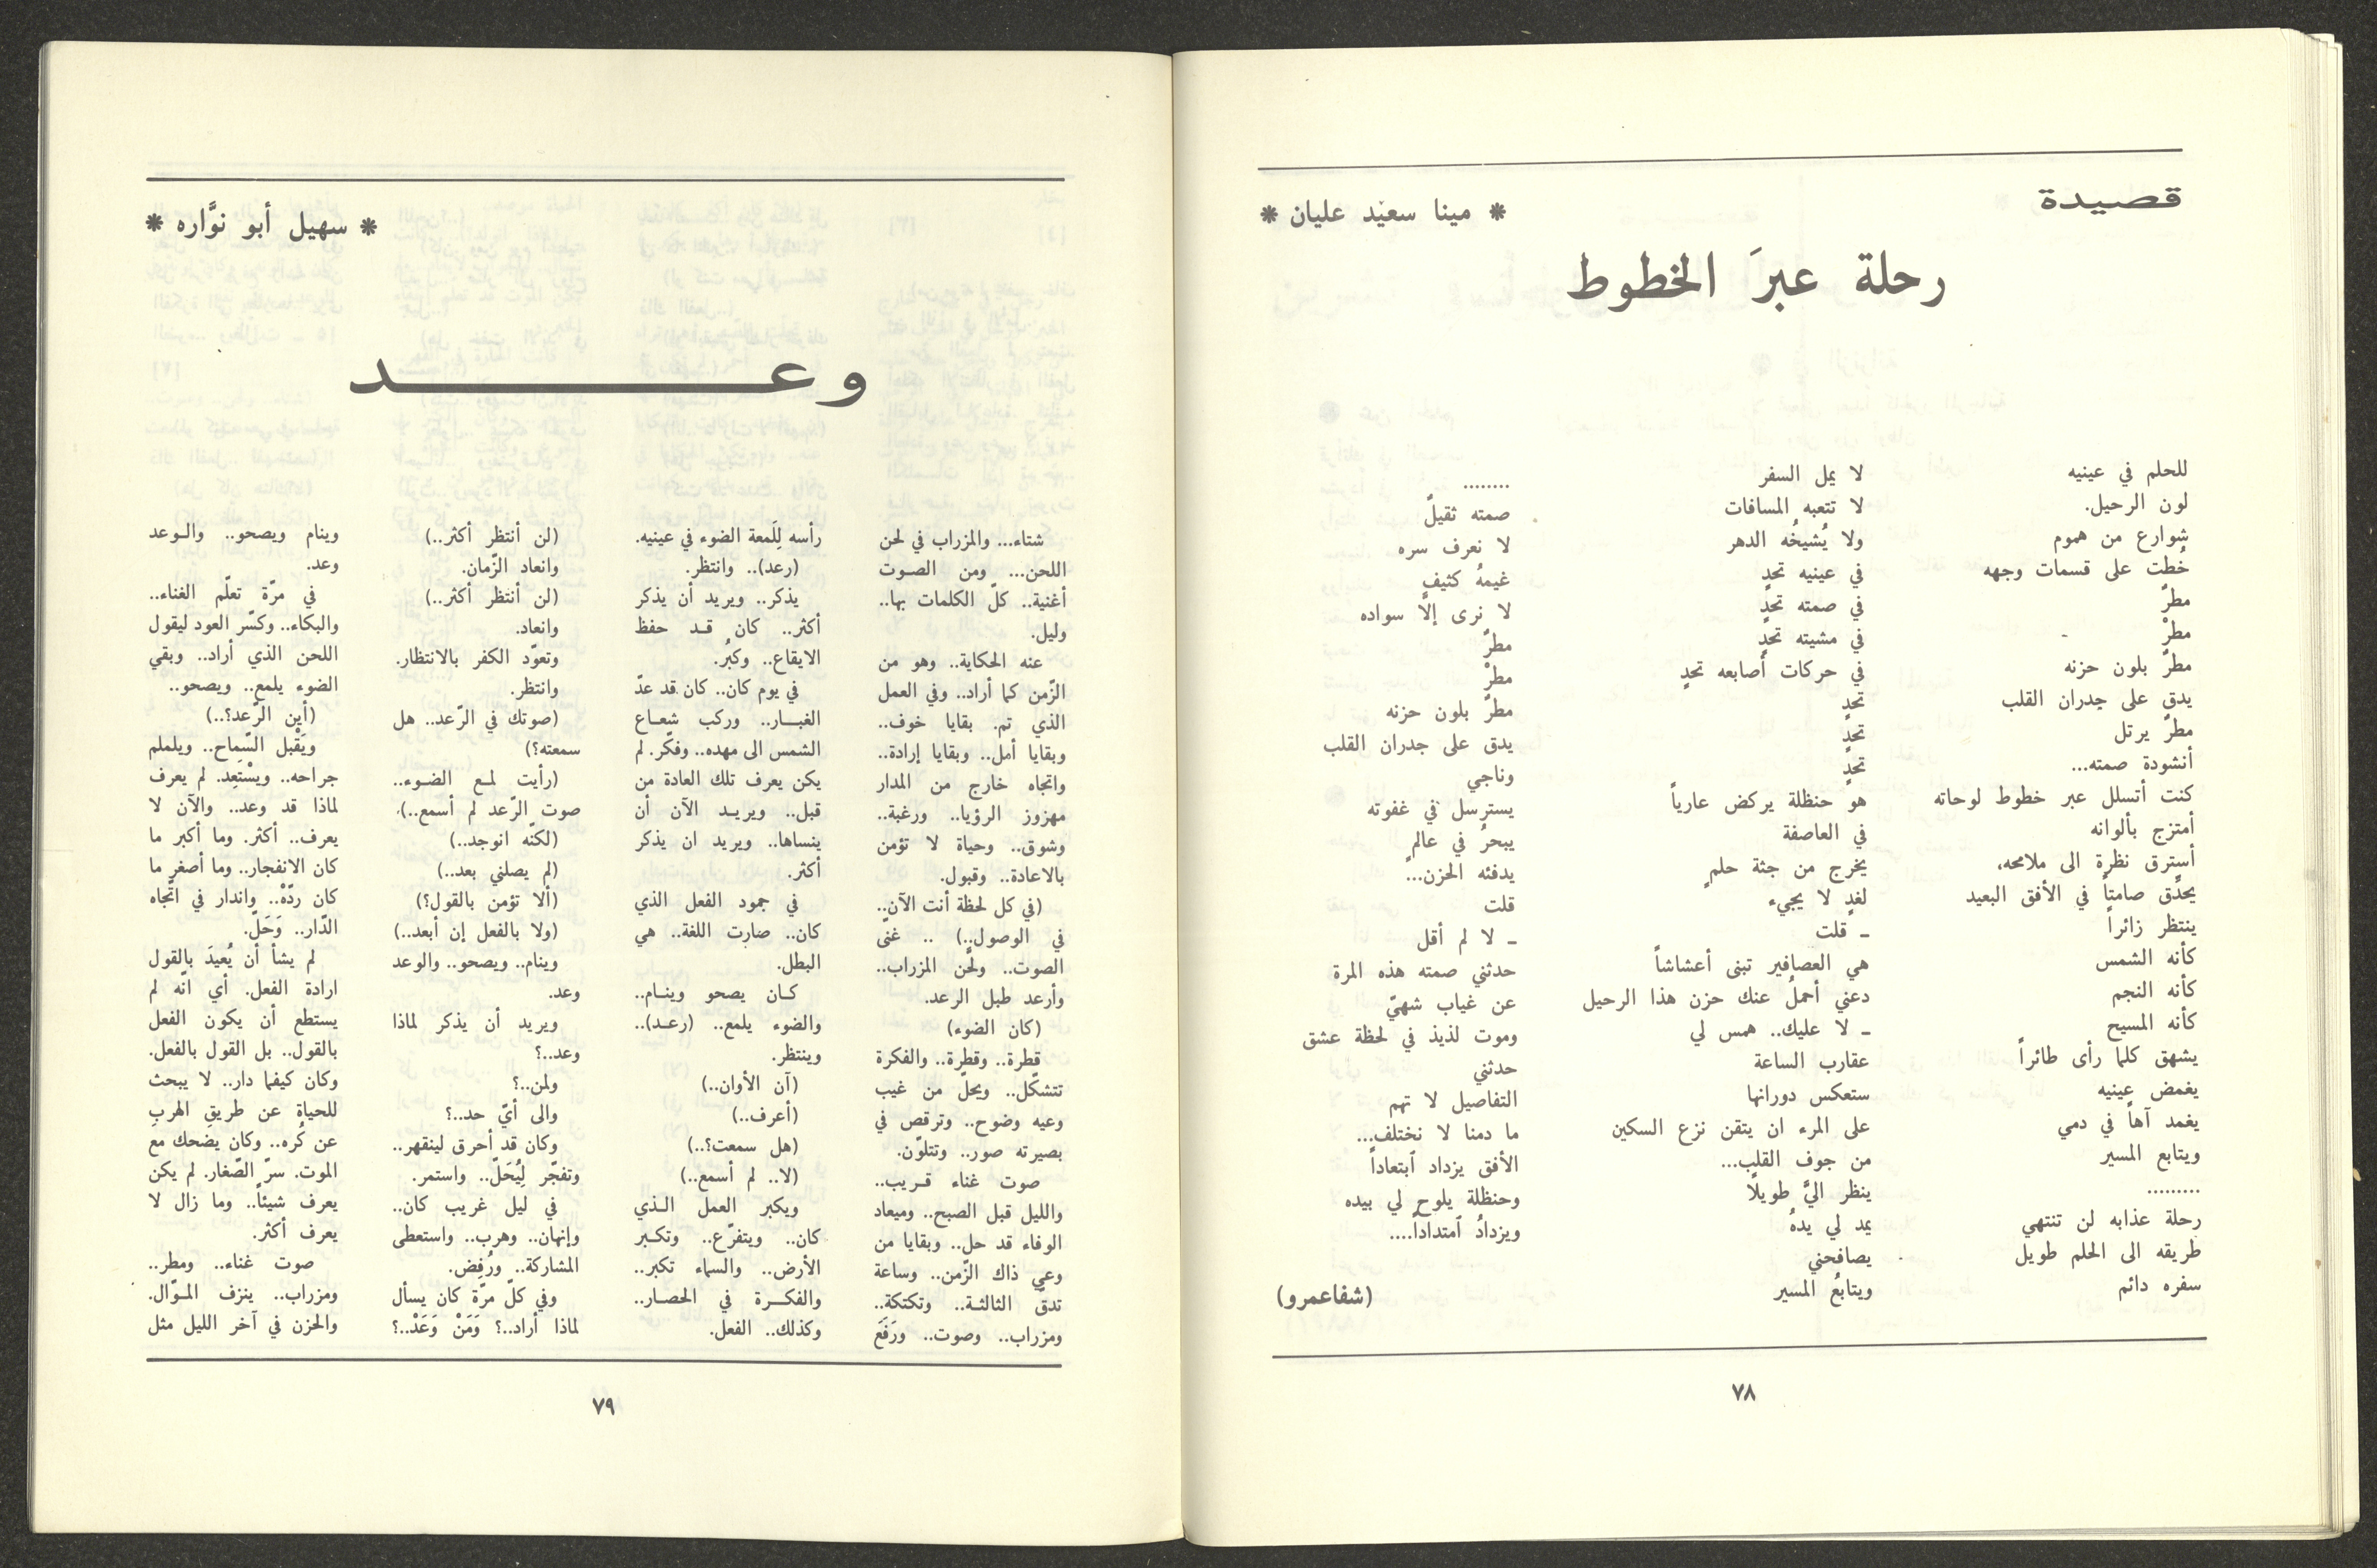 قصيدة
* مينا سعيْد عليان *
رحلة عبرَ الخطوط
للحلم في عينيه
لون الرحيل.
شوارع من هموم
خُطت على قسمات وجهه
مطرٌ
مطرْ
مطرٌ بلون حزنه
يدق على جدران القلب
مطرٌ يرتل
أنشودة صمته...
كنت أتسلل عبر خطوط لوحاته
أمتزج بألوانه
أسترق نظرة الى ملامحه،
يحدَّق صامتاً في الأفق البعيد
ينتظر زائراً
كأنه الشمس
كأنه النجم
كأنه المسيح
يشهق كلما رأى طائراً
يغمض عينيه
يغمد آهاً في دمي
ويتابع المسير
.........
رحلة عذابه لن تنتهي
طريقه الى الحلم طويل
سفره دائم
لا يمل السفر
لا تتعبه المسافات
ولا يُشيخُه الدهر
في عينيه تحدٍ
في صمته تحدٍ
في مشيته تحدٍ
في حركات أصابعه تحدٍ
تحدٍ
تحدٍ
تحدٍ
هو حنظلة يركض عارياً
في العاصفة
يخرج من جثة حلمٍ
لغدٍ لا يجيء
ـ قلت
هي العصافير تبنى أعشاشاً
دعني أحملُ عنك حزن هذا الرحيل
ـ لا عليك.. همس لي
عقارب الساعة
ستعكس دورانها
على المرء ان يتقن نزع السكين
من جوف القلب...
ينظر اليَّ طويلًا
يمد لي يدهُ
يصافحني
ويتابعُ المسير
........
صمته ثقيلٌ
لا نعرف سره
غيمهُ كثيفٌ
لا نرى إلّا سواده
مطرٌ
مطرْ
مطرٌ بلون حزنه
يدق على جدران القلب
وناجي
يسترسل في غفوته
يبحرُ في عالمٍ
يدفئه الحزن...
قلت
ـ لا لم أقل
حدثني صمته هذه المرة
عن غياب شهيّ
وموت لذيذ في لحظة عشق
حدثني
التفاصيل لا تهم
ما دمنا لا نختلف...
الأفق يزداد ٱبتعاداً
وحنظلة يلوح لي بيده
ويزدادُ ٱمتداداً....
(شفاعمرو)
٧٨
* سهيل أبو نوَّاره *
وعـــــــــد
شتاء... والمزراب في لحن
اللحن... ومن الصوت
أغنية.. كلّ الكلمات بها..
وليل.
عنه الحكاية.. وهو من
الزّمن كما أراد.. وفي العمل
الذي تم. بقايا خوف..
وبقايا أمل.. وبقايا إرادة..
واتجاه خارج من المدار
مهزوز الرؤيا.. ورغبة..
وشوق.. وحياة لا تؤمن
بالاعادة.. وقبول.
(في كل لحظة أنت الآن..
في الوصول..) .. غنّى
الصوت.. ولّحن المزراب..
وأرعد طبل الرعد.
(كان الضوء)
قطرة.. وقطرة.. والفكرة
تتشكّل.. ويحلّ من غيب
وعيه وضوح.. وترقص في
بصيرته صور.. وتتلوّن.
صوت غناء قريب..
والليل قبل الصبح.. وميعاد
الوفاء قد حل.. وبقايا من
وعي ذاك الزّمن.. وساعة
تدقّ الثالثة.. وتكتكة..
ومزراب.. وصوت.. ورَفَعَ
رأسه لِلَمعة الضوء في عينيه.
(رعد).. وانتظر.
يذكر.. ويريد أن يذكر
أكثر.. كان قد حفظ
الايقاع.. وكبُر.
في يوم كان.. كان قد عدّ
الغبار.. وركب شعاع
الشمس الى مهده.. وفكّر. لم
يكن يعرف تلك العادة من
قبل.. ويريد الآن أن
ينساها.. ويريد ان يذكر
أكثر.
في جمود الفعل الذي
كان.. صارت اللغة.. هي
البطل.
كان يصحو وينام..
والضوء يلمع.. (رعد)..
وينتظر.
(آن الأوان..)
(أعرف..)
(هل سمعت؟..)
(لا.. لم أسمع..)
ويكبر العمل الذي
كان.. ويتفرّع.. وتكبر
الأرض.. والسماء تكبر..
والفكرة في الحصار..
وكذلك.. الفعل.
(لن أنتظر أكثر..)
وانعاد الزّمان.
(لن أنتظر أكثر..)
وانعاد.
وتعوّد الكفر بالانتظار.
وانتظر.
(صوتك في الرّعد.. هل
سمعته؟)
(رأيت لمع الضوء..
صوت الرّعد لم أسمع..)
(لكنّه انوجد..)
(لم يصلني بعد..)
(ألا تؤمن بالقول؟)
(ولا بالفعل إن أبعد..)
وينام.. ويصحو.. والوعد
وعد.
ويريد أن يذكر لماذا
وعد..؟
ولمن..؟
والى أيّ حد..؟
وكان قد أحرق لينقهر..
وتفجّر لِيُحَلّ.. واستمر.
في ليل غريب كان..
وإنهان.. وهرب.. واستعطى
المشاركة.. ورُفِض.
وفي كلّ مرّة كان يسأل
لماذا أراد..؟ وَمَنْ وَعَدْ..؟
وينام ويصحو.. والوعد
وعد.
في مرّة تعلّم الغناء..
والبكاء.. وكسّر العود ليقول
اللحن الذي أراد.. وبقي
الضوء يلمع.. ويصحو..
(أين الرّعد؟..)
ويَقْبل السّماح.. ويلملم
جراحه.. ويسْتَعِد. لم يعرف
لماذا قد وعد.. والآن لا
يعرف.. أكثر. وما أكبر ما
كان الانفجار.. وما أصغر ما
كان ردّهْ.. واندار في اتّجاه
الدّار.. وَحَلّ.
لم يشأ أن يُعيدَ بالقول
ارادة الفعل. أي انّه لم
يستطع أن يكون الفعل
بالقول.. بل القول بالفعل.
وكان كيفما دار.. لا يبحث
للحياة عن طريق الهربِ
عن كُره.. وكان يضحك مع
الموت. سرّ الصّغار. لم يكن
يعرف شيئاً.. وما زال لا
يعرف أكثر.
صوت غناء.. ومطر..
ومزراب.. ينزف الموّال.
والحزن في آخر الليل مثل
٧٩